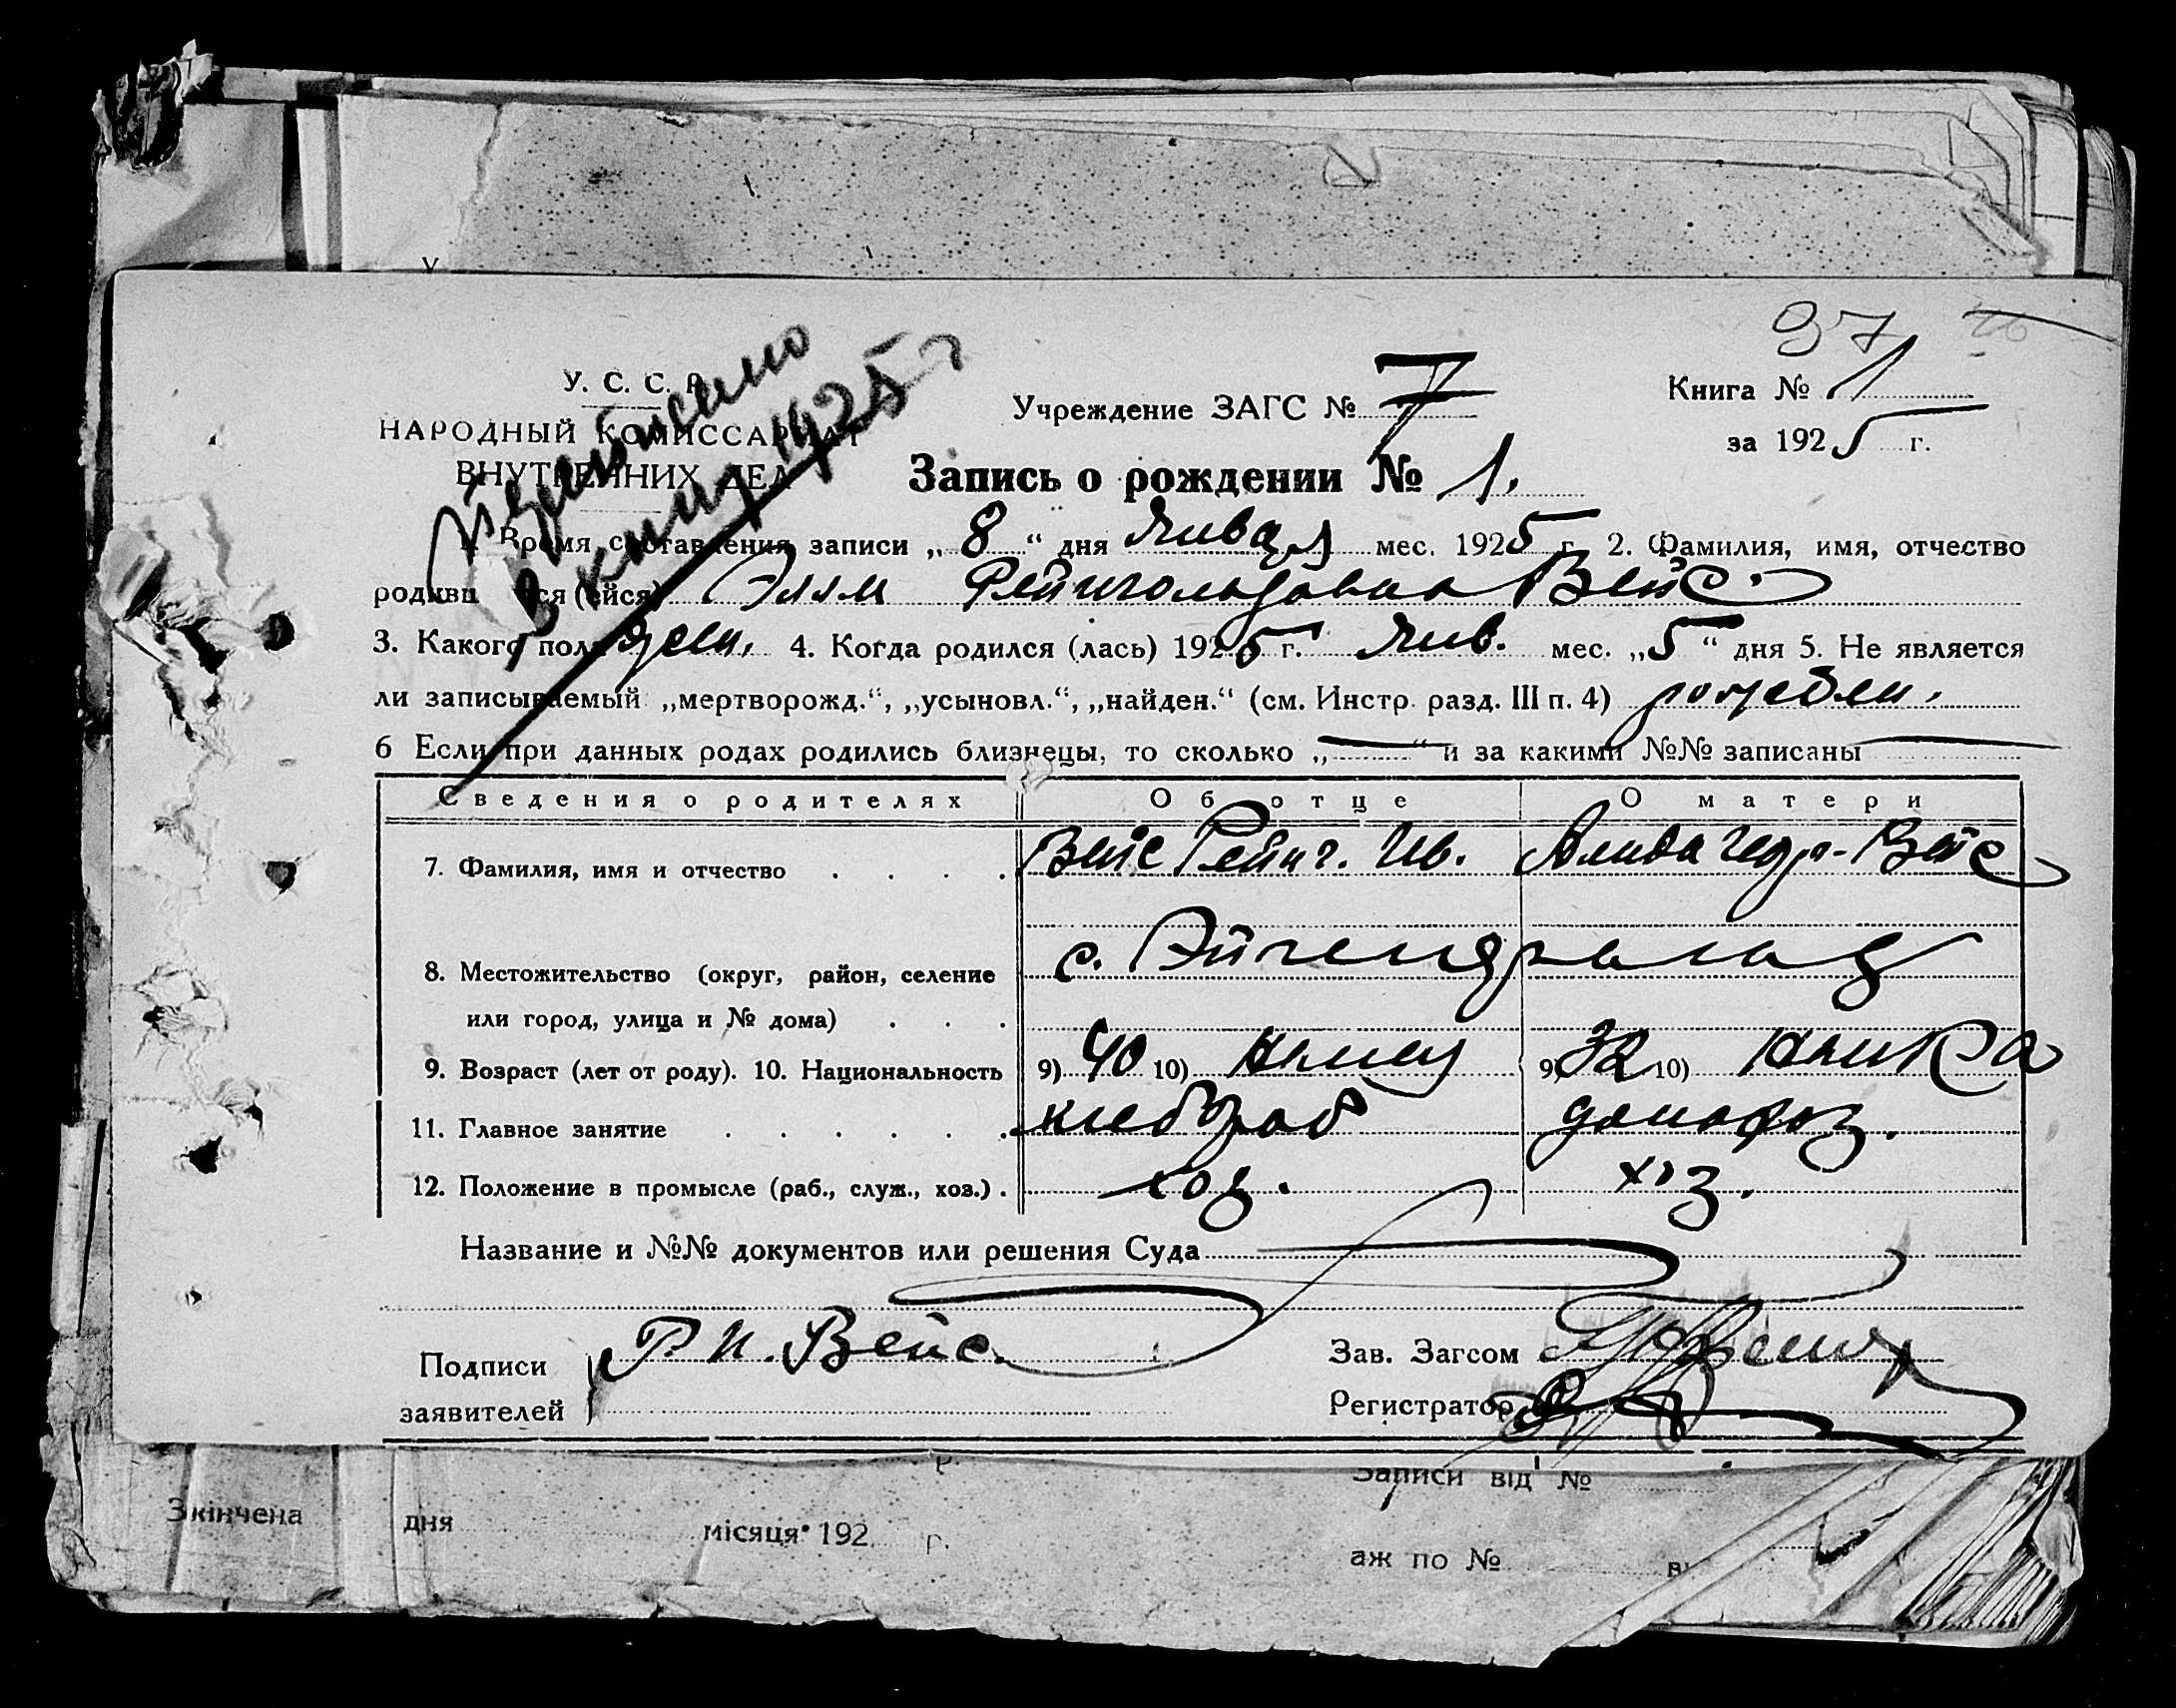 37
У. С. С. Р.
НАРОДНЫЙ КОМИССАРИАТ
ВНУТРЕННИХ ДЕЛ
в книгу 1925 г
Учреждение ЗАГС № 7
Книга № 1
за 1925 г.
Запись о рождении № 1.
1. Время составления записи „ 8 “ дня Января мес. 1925 г. 2. Фамилия, имя, отчество
родивш ся (ейся) Элла Рейнгольдовна Вейс.
3. Какого пола жен. 4. Когда родился (лась) 1925 г. Янв. мес. „ 5 “ дня 5. Не является
ли записываемый „мертворожд.“, „усыновл.“, „найден.“ (см. Инстр. разд. III п. 4)
6 Если при данных родах родились близнецы, то сколько „ — “ и за какими №№ записаны —
Сведения о родителях Об отце О матери
7. Фамилия, имя и отчество . . . . Вейс Рейнг. Ив. Алида Вейс
8. Местожительство (округ, район, селение с.
или город, улица и № дома) . . .
9. Возраст (лет от роду). 10. Национальность 9) 40 10) Немец 9) 32 10) Немка
11. Главное занятие . . . . . . хлебороб домохоз.
12. Положение в промысле (раб., служ., хоз.) . хоз. хоз.
Название и №№ документов или решения Суда
Подписи заявителей Р. И. Вейс.
Зав. Загсом
Регистратор
Записи від №
Закінчена дня місяця 192 р.
аж по № ві